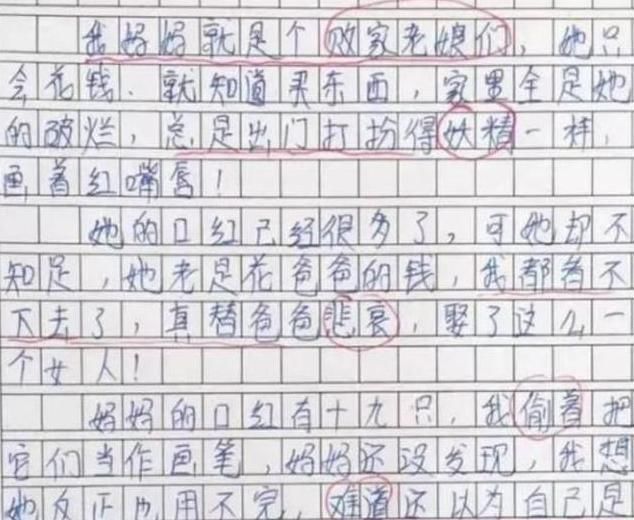 我妈妈就是个败家老娘们，她只
会花钱、就知道买东西，家里全是她
的破烂，总是出门打扮得妖精一样，
画着红嘴唇！
她的口红已经很多了，可她却不
知足，她老是花爸爸的钱，我都看不
下去了，真替爸爸悲哀，娶了这么一
个女人！
妈妈的口红有十九只，我偷着把
它们当作画笔，妈妈还没发现，我想
她反正也用不完，难道还以为自己是